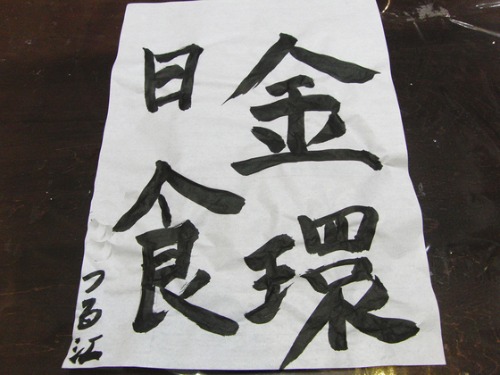 金環
日食
つる江